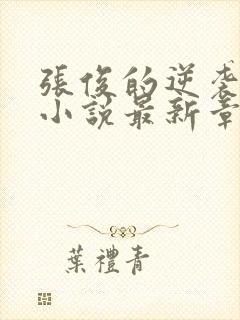 張俊的逆袭
小說最新章
葉禮青